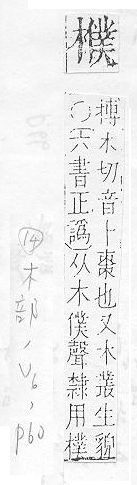 㯷
搏木切音卜棗也又木叢生貌
○六書正譌从木僕聲隸用樸
⑭木部, V6, p60